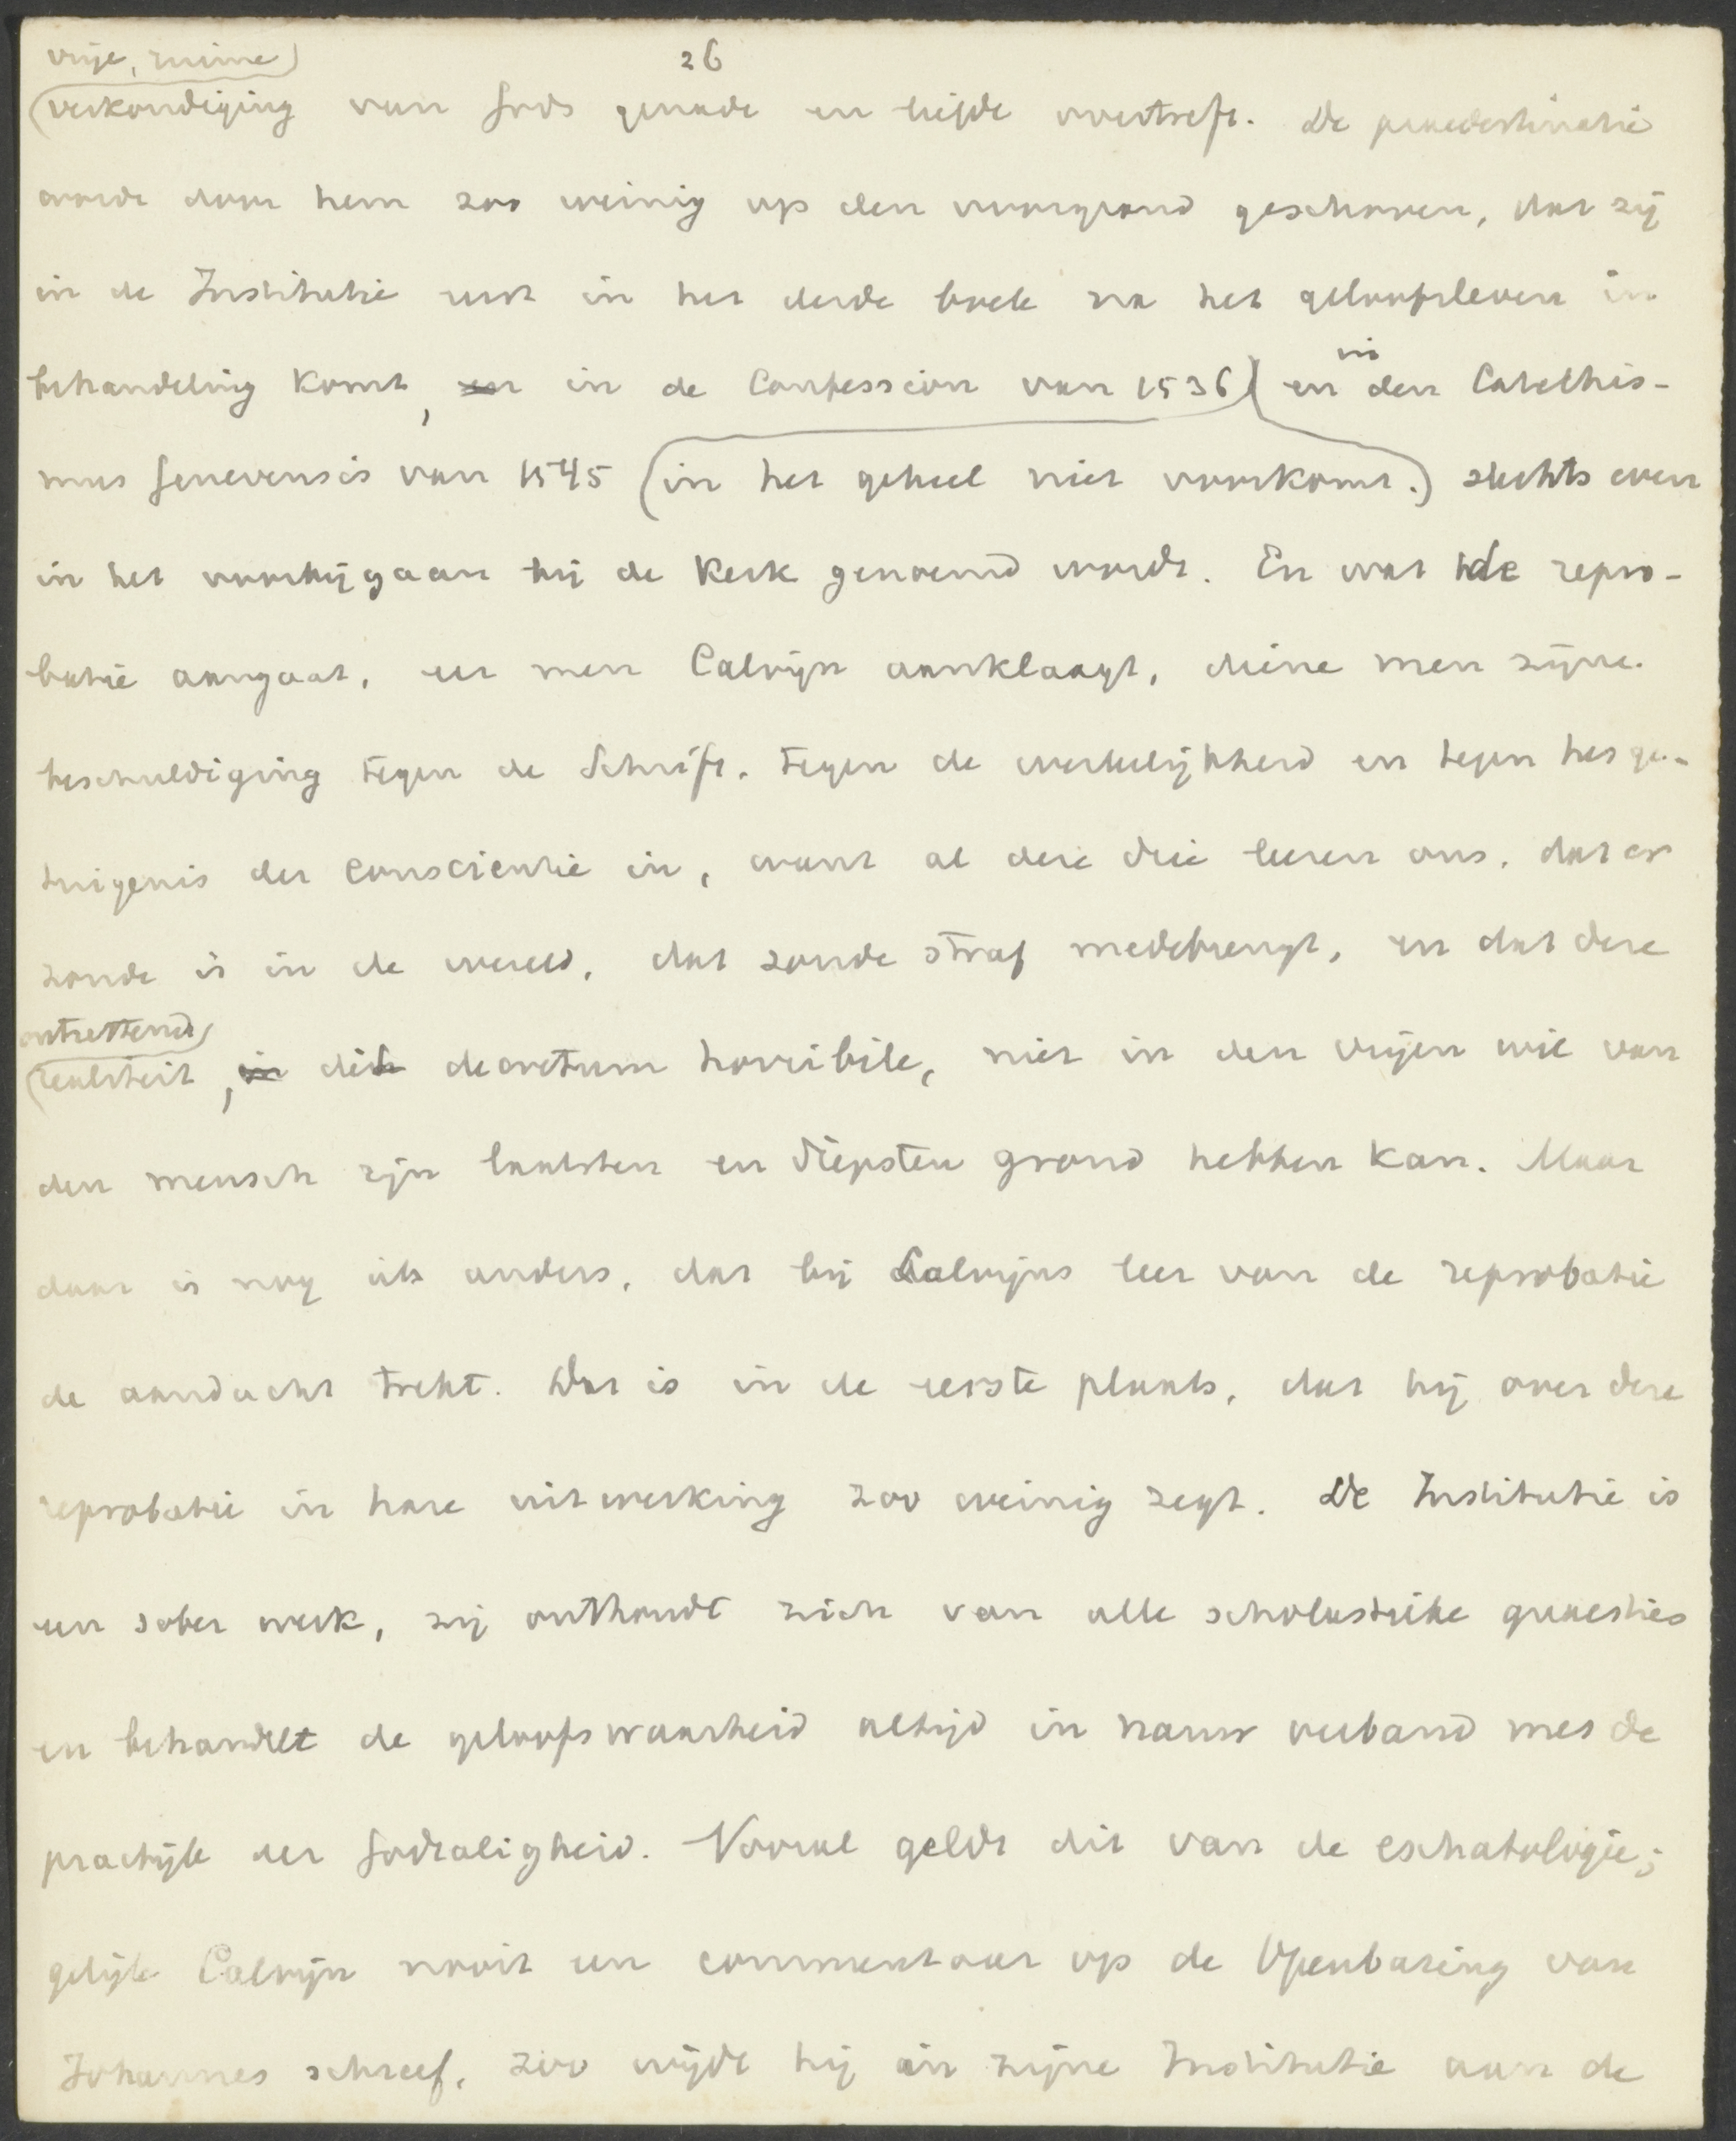 26
vrije, ruime
verkondiging van Gods genade en liefde overtreft. De praedestinatie
wordt door hem zoo weinig op den voorgrond geschoven, dat zij
in de Institutie eerst in het derde boek na het geloofsleven in
behandeling komt, en in de Confession van 1536 en in den Catechis-
mus Genevensis van 1545 (in het geheel niet voorkomt.) slechts even
in het voorbijgaan bij de Kerk genoemd wordt. En wat de repro-
batie aangaat, eer men Calvijn aanklaagt, diene men zijne
beschuldiging tegen de Schrift, tegen de werkelijkheid en tegen het ge-
tuigenis der conscientie in, want al deze drie leeren ons, dat er
zonde is in de wereld, dat zonde straf medebrengt, en dat deze
ontzettende
realiteit, in dit decretum horribile, niet in den vrijen wil van
den mensch zijn laatsten en diepsten grond hebben kan. Maar
daar is nog iets anders, dat bij Calvijns leer van de reprobatie
de aandacht trekt. Dat is in de eerste plaats, dat hij over deze
reprobatie in hare uitwerking zoo weinig zegt. De Institutie is
een sober werk, zij onthoudt zich van alle scholastieke quaesties
en behandelt de geloofswaarheid altijd in nauw verband met de
practijk der Godzaligheid. Vooral geldt dit van de eschatologie;
gelijk Calvijn nooit een commentaar op de Openbaring van
Johannes schreef, zoo wijdt hij in zijne Institutie aan de